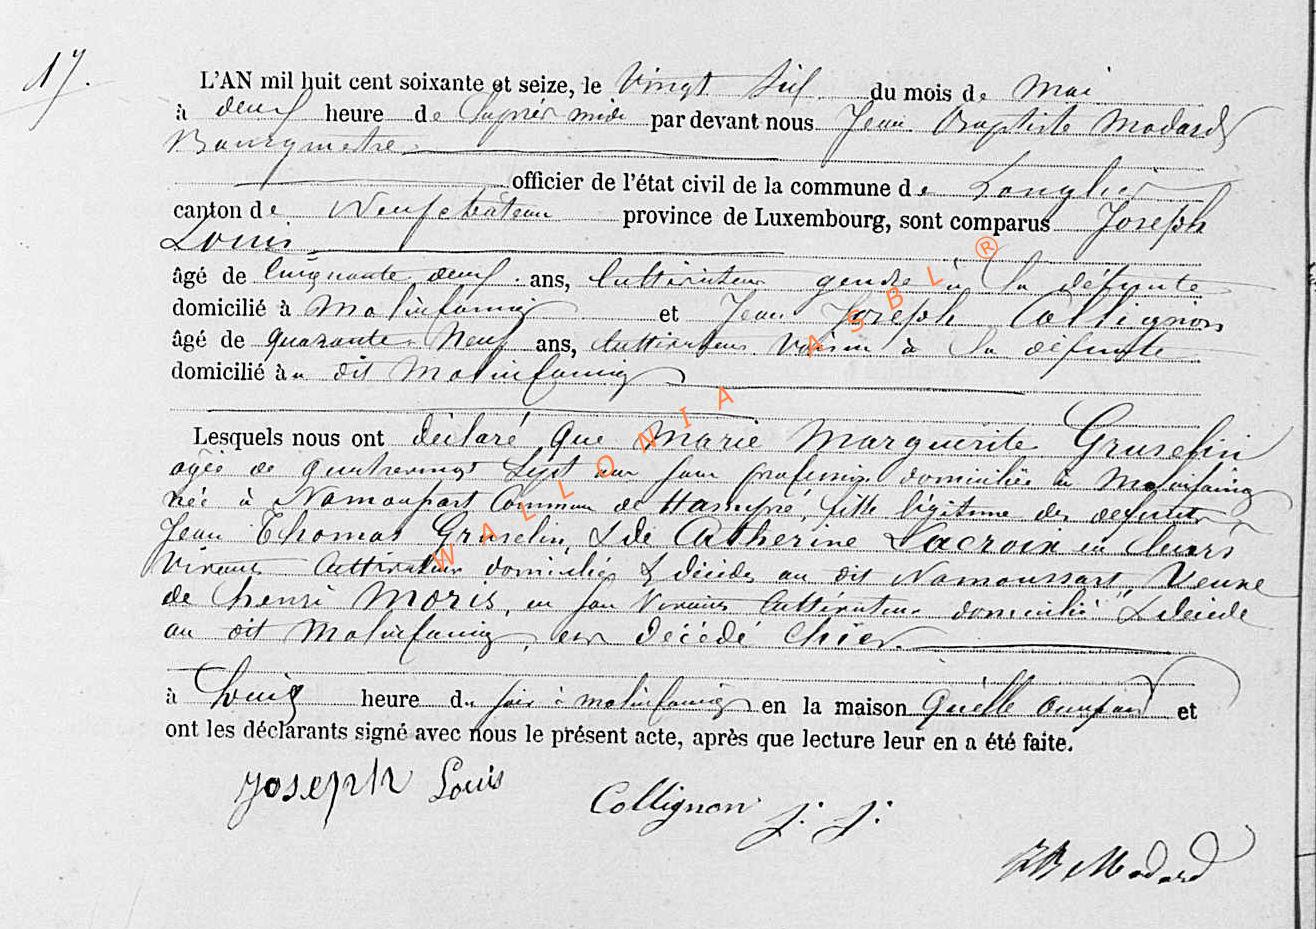 17.
L'AN mil huit cent soixante et seize, le Vingt Six du mois de Mai
à deux heure de l'après midi par devant nous Jean Baptiste Modard
Bourgmestre
officier de l'état civil de la commune de Longlier
canton de Neufchâteau province de Luxembourg, sont comparus Joseph
Louis
âgé de Cinquante deux ans, Cultivateur gendre à la défunte
domicilié à Molinfaing et Jean Joseph Collignon
âgé de quarante Neuf ans, Cultivateur Voisin à la défunte
domicilié à u dit Molinfaing
Lesquels nous ont déclaré que Marie Marguerite Gruselin
agée de quatrevingt Sept ans sans profession domiciliée à Molinfaing
née à Namoussart Commune de Hamipré, fille légitime des défunts
Jean Thomas Gruselin, & de Catherine Lacroix en leurs
Vivant Cultivateur domiciliés & décédés au dit Namoussart, Veuve
de henri Moris, en son Vivant Cultivateur domicilié & décédé
au dit Molinfaing, est décédé hier
à huit heure du soir à molinfaing en la maison qu'elle occupait et
ont les déclarants signé avec nous le présent acte, après que lecture leur en a été faite.
Joseph Louis
Collignon j. j.
JB Modard
WALLONIA ASBL ®